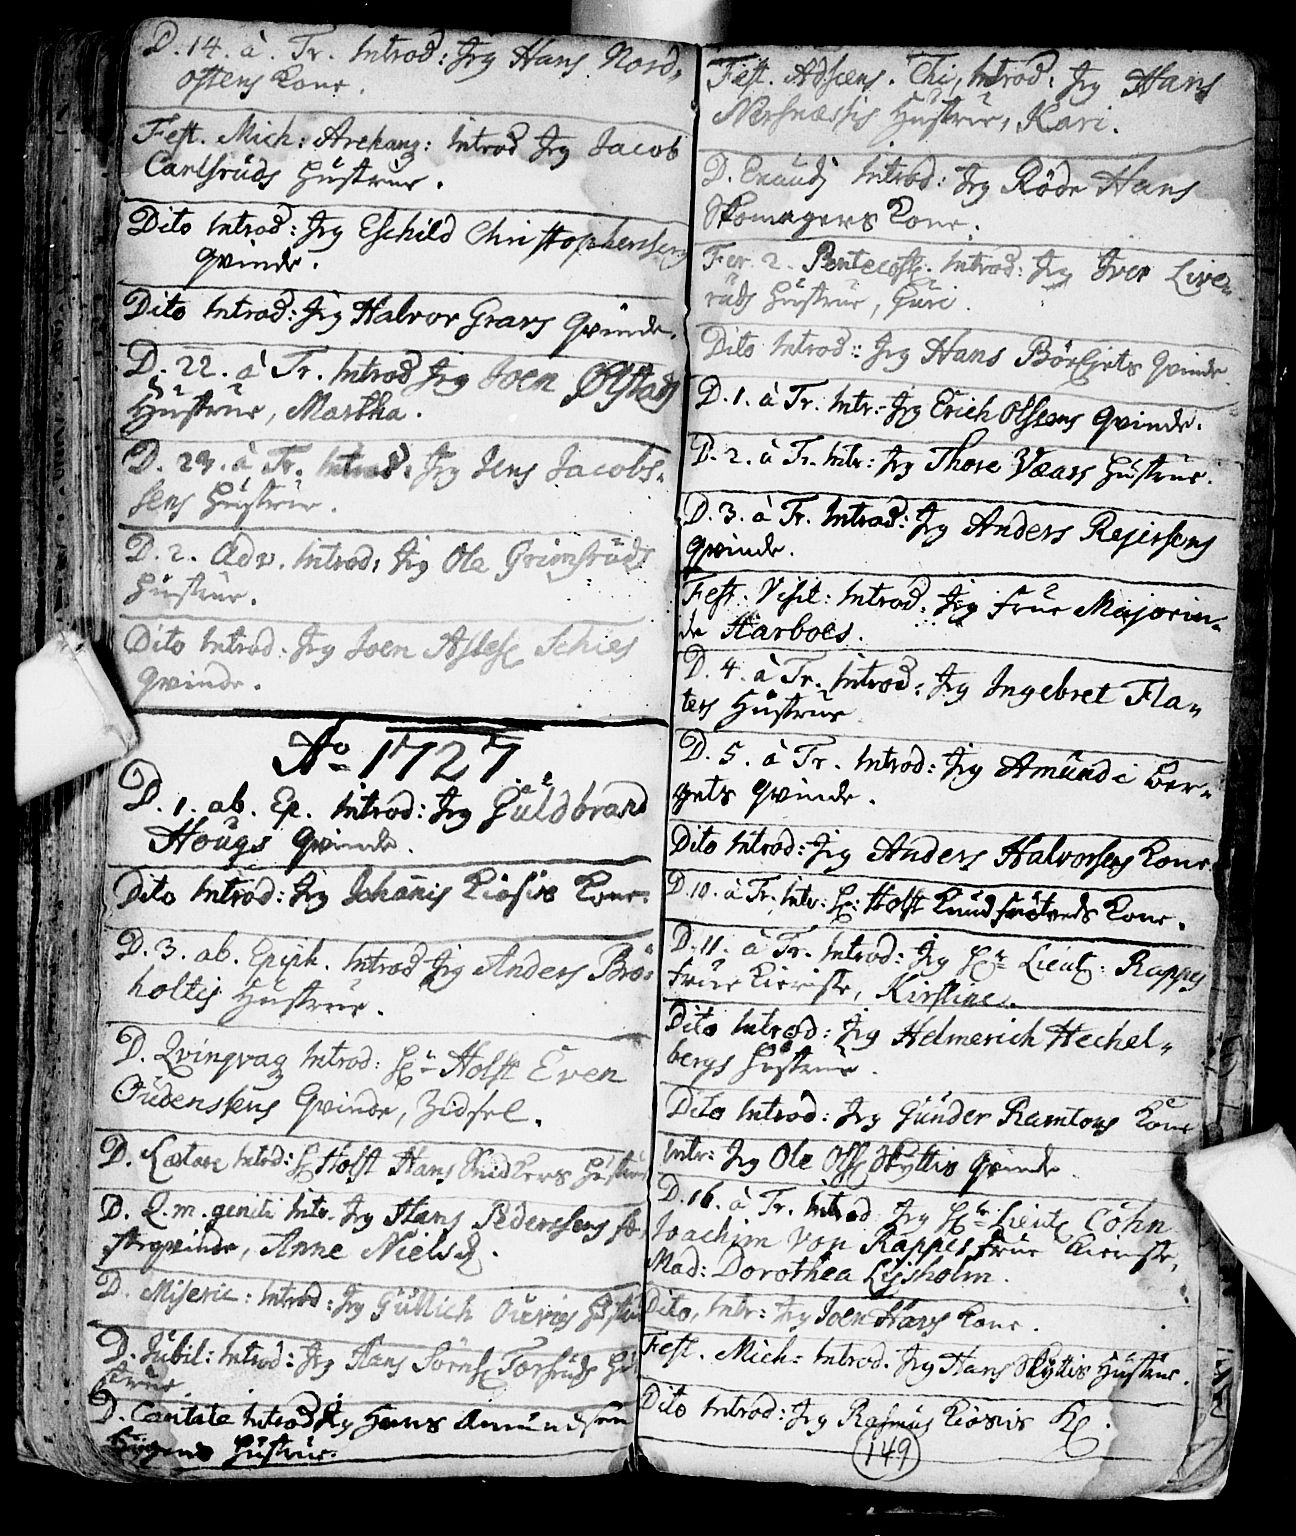 D. 14. à. Tr. Introd: Jeg Hans Nord-
ostens Kone.
Fest. Mich: Archang: Introd Jeg Jacob
Carlsrüds Hüstrue.
Dito Introd: Jeg Eschild Christophersens
Qvinde.
Dito Introd: Jeg Halvor Gravs Qvinde.
D. 22. à Tr. Introd Jeg Joen Ølstads
Hüstrüe, Martha.
D. 24. à Tr. Introd: Jeg Jens Jacobs-
sens Hüstrüe.
D. 2. Adv. Introd: Jeg Ola Grimsrüds
Hüstrüe.
Dito Introd: Jeg Joen Aslefs. Schies
Qvinde.
Ao 1727
D. 1. ab. Ep. Introd: Jeg Güldbrand
Hougs Qvinde.
Dito Introd: Jeg Johannis Kiøsis Kone.
D. 3. ab. Epiph. Introd Jeg Anders Brö-
holtes Hüstrüe.
D. Qvinqvag Introd: Hr. Holst Even
Oüdenssens Qvinde, Zidsel.
D. Lætare Introd: H. Holst Hans Snidkers Hüstrüe
D. Q. m. geniti Intr. Jeg Hans Pederssens
Anne Nielsd.
D. Miseric: Introd: Jeg Güllich
D. Jübil: Introd: Jeg Hans Sörns. Torsrüds Hü-
strüe
D. Cantate Introd Jeg Hans Amündsen
Hüstrüe.
Fest. Adscens. Chi, Introd: Jeg Hans
Nersnæssis Hüstrüe, Kari.
D. Exaudj Introd: Jeg Røde Hans
Skomagers Kone.
Fer. 2. Pentecost. Introd: Jeg Iver Live-
rüds Hüstrüe, Güri.
Dito Introd: Jeg Hans Börgets Qvinde.
D. 1. à Tr. Intr: Jeg Erich Olssens Qvinde.
D. 2. à Tr. Intr: Jeg Thore Vaars Hüstrüe.
D. 3. à Tr. Introd: Jg Anders Rejerssens
Qvinde.
Fest. Visit: Introd: Jeg Frue Majorin-
de Harboes.
D. 4. à Tr. Introd: Jeg Ingebret Fla-
tes Hüstrüe
D. 5. à Tr. Introd: Jeg Amündi Ber-
gets Qvinde.
Dito Introd: Jeg Anders Halvorsens Kone.
D. 10. à Tr. Intr: H: Holst Knud Kone.
D. 11. à Tr. Introd: Jeg Hr. Lieut: Rappes
Früe Kieriste, Kirstine.
Dito Introd: Jeg Helmerich Hechel-
bergs Hüstrüe.
Dito Introd: Jeg Günder Ramtons Kone
Intr: Jeg Ole Olss. Skyttis Qvinde.
D. 16. à Tr. Introd. Jeg Hr. Lieut. Cohn
Joachim von Rappes Früe Kieriste,
Mad: Dorothea Lysholm.
Dito, Intr: Jeg Joen Kone.
Fest. Mich: Introd. Jeg Hans Skyttis Hüstrüe.
Dito Introd: Jeg Rasmus Kiøsis K.
149